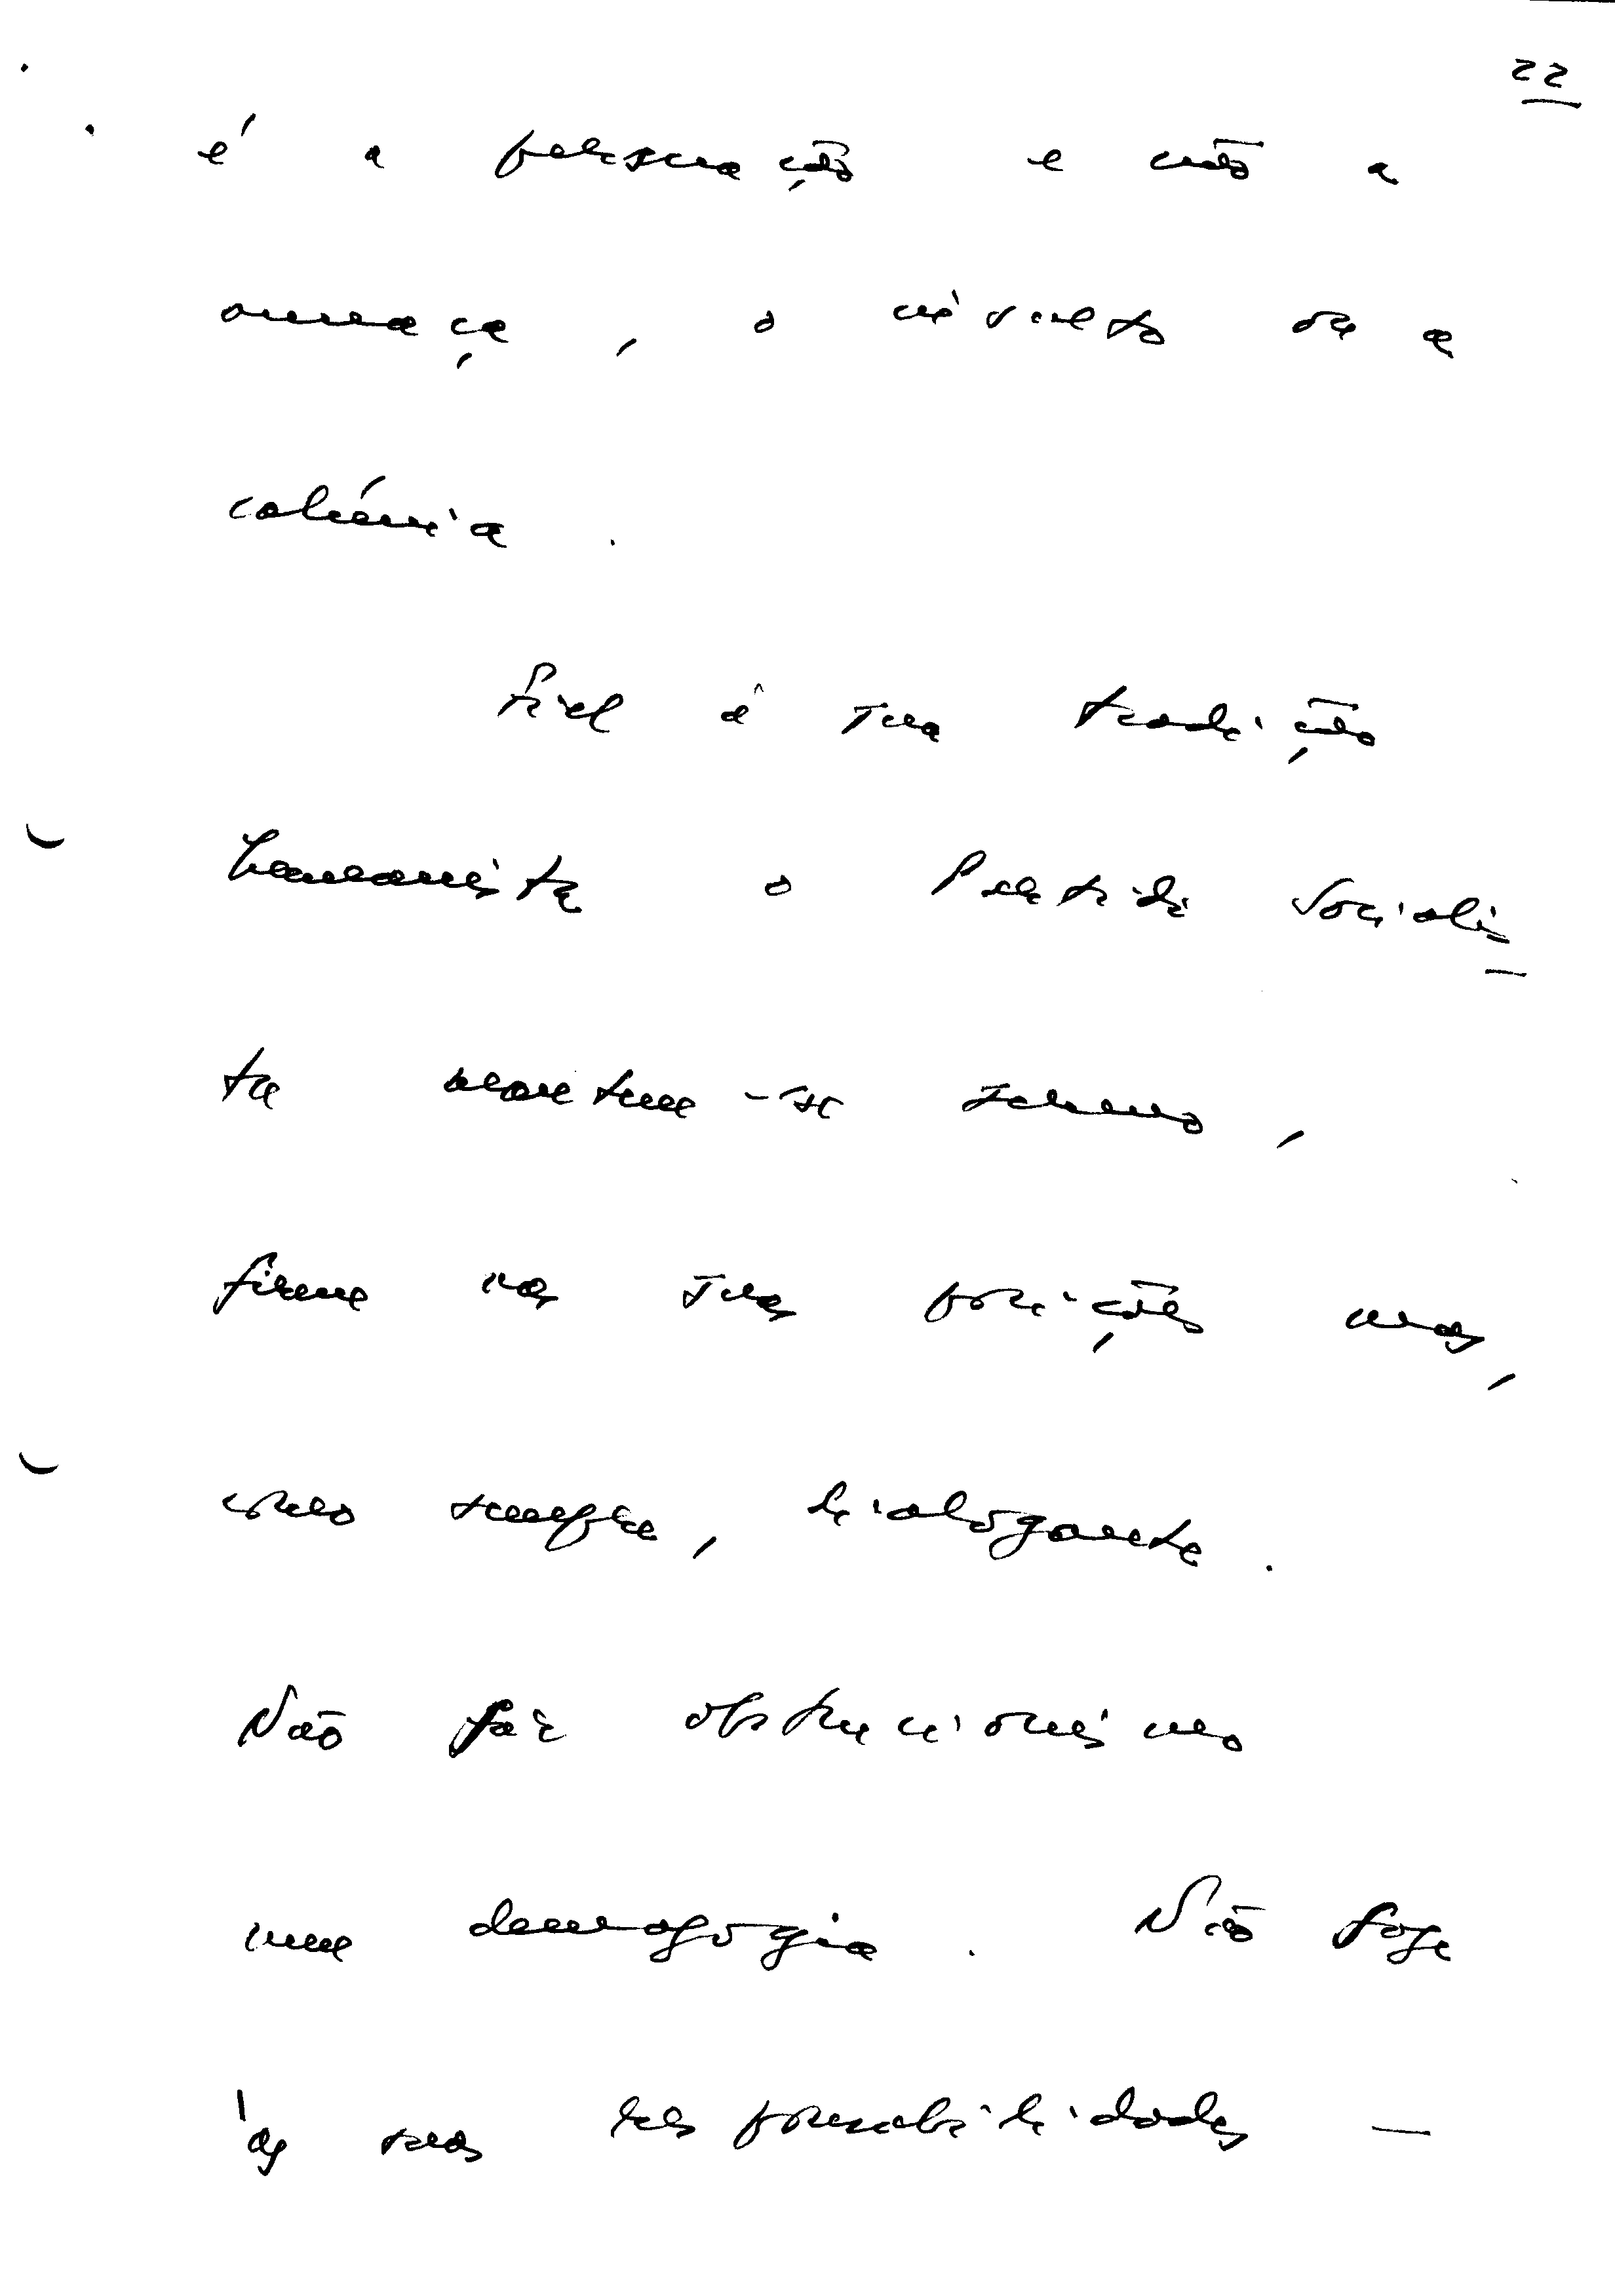 22
é a persuação e não a
ameaça, o insulto ou a
calúnia.
Fiel à sua tradição
humanista o Partido Socialis-
ta mantem-se sereno,
firme nas suas posições mas,
como sempre, dialogante.
Não faz obstrucionismo
nem demagogia. Não foge
às suas responsabilidades —